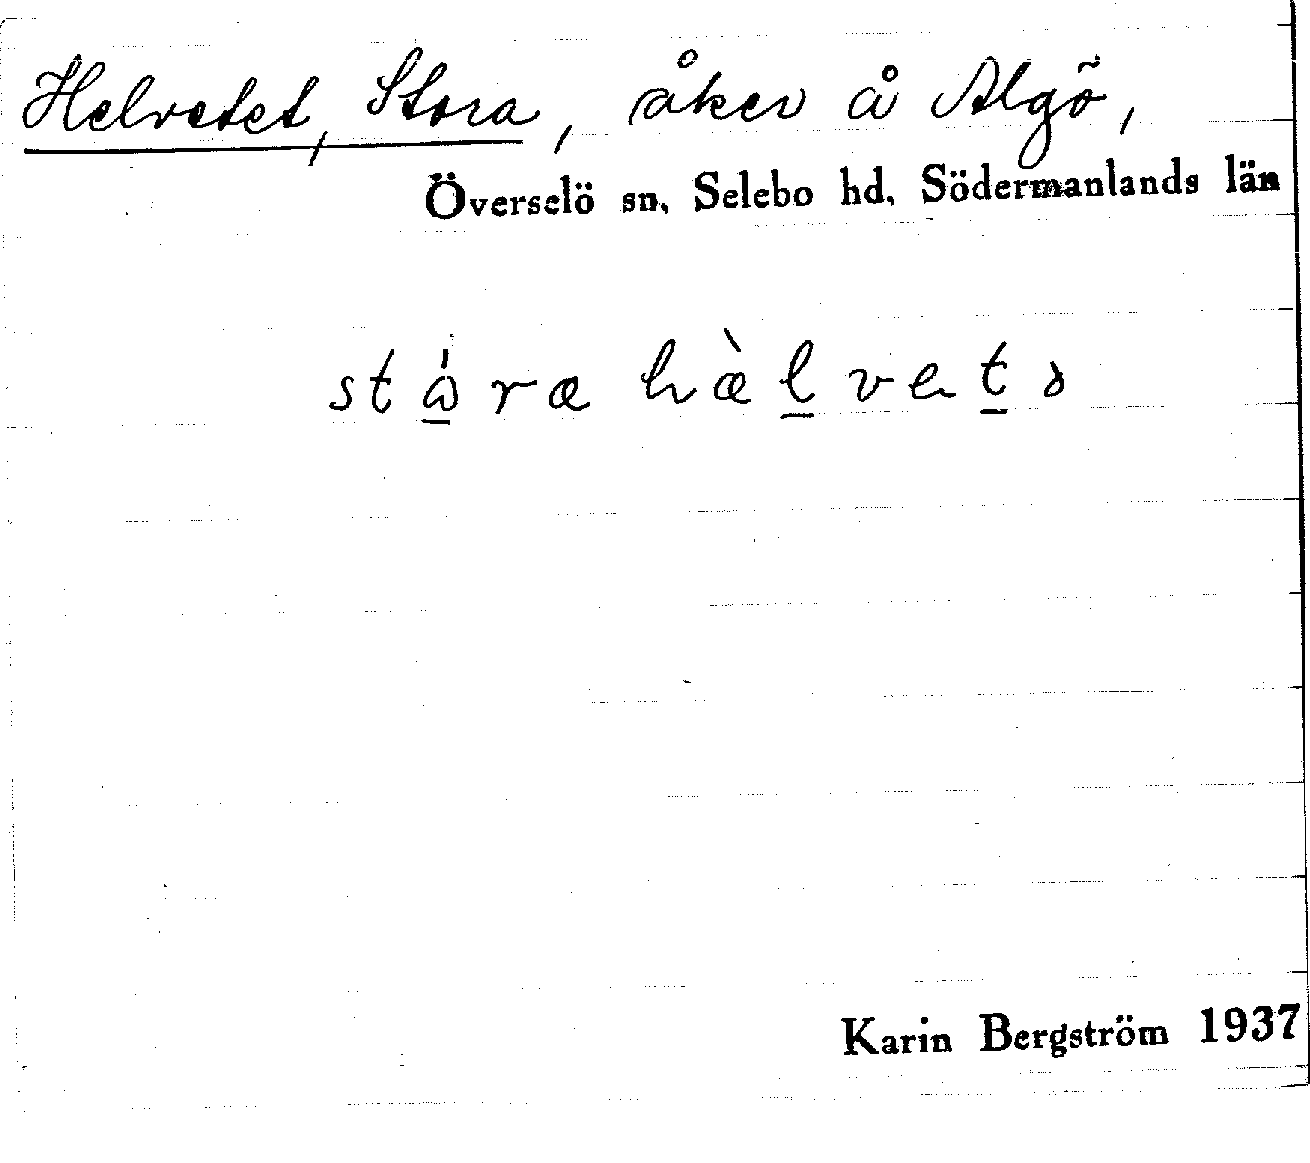 Helvetet, Stora, åker å Algö,
Överselö sn, Selebo hd, Södermanlands län
Karin Bergström 1937